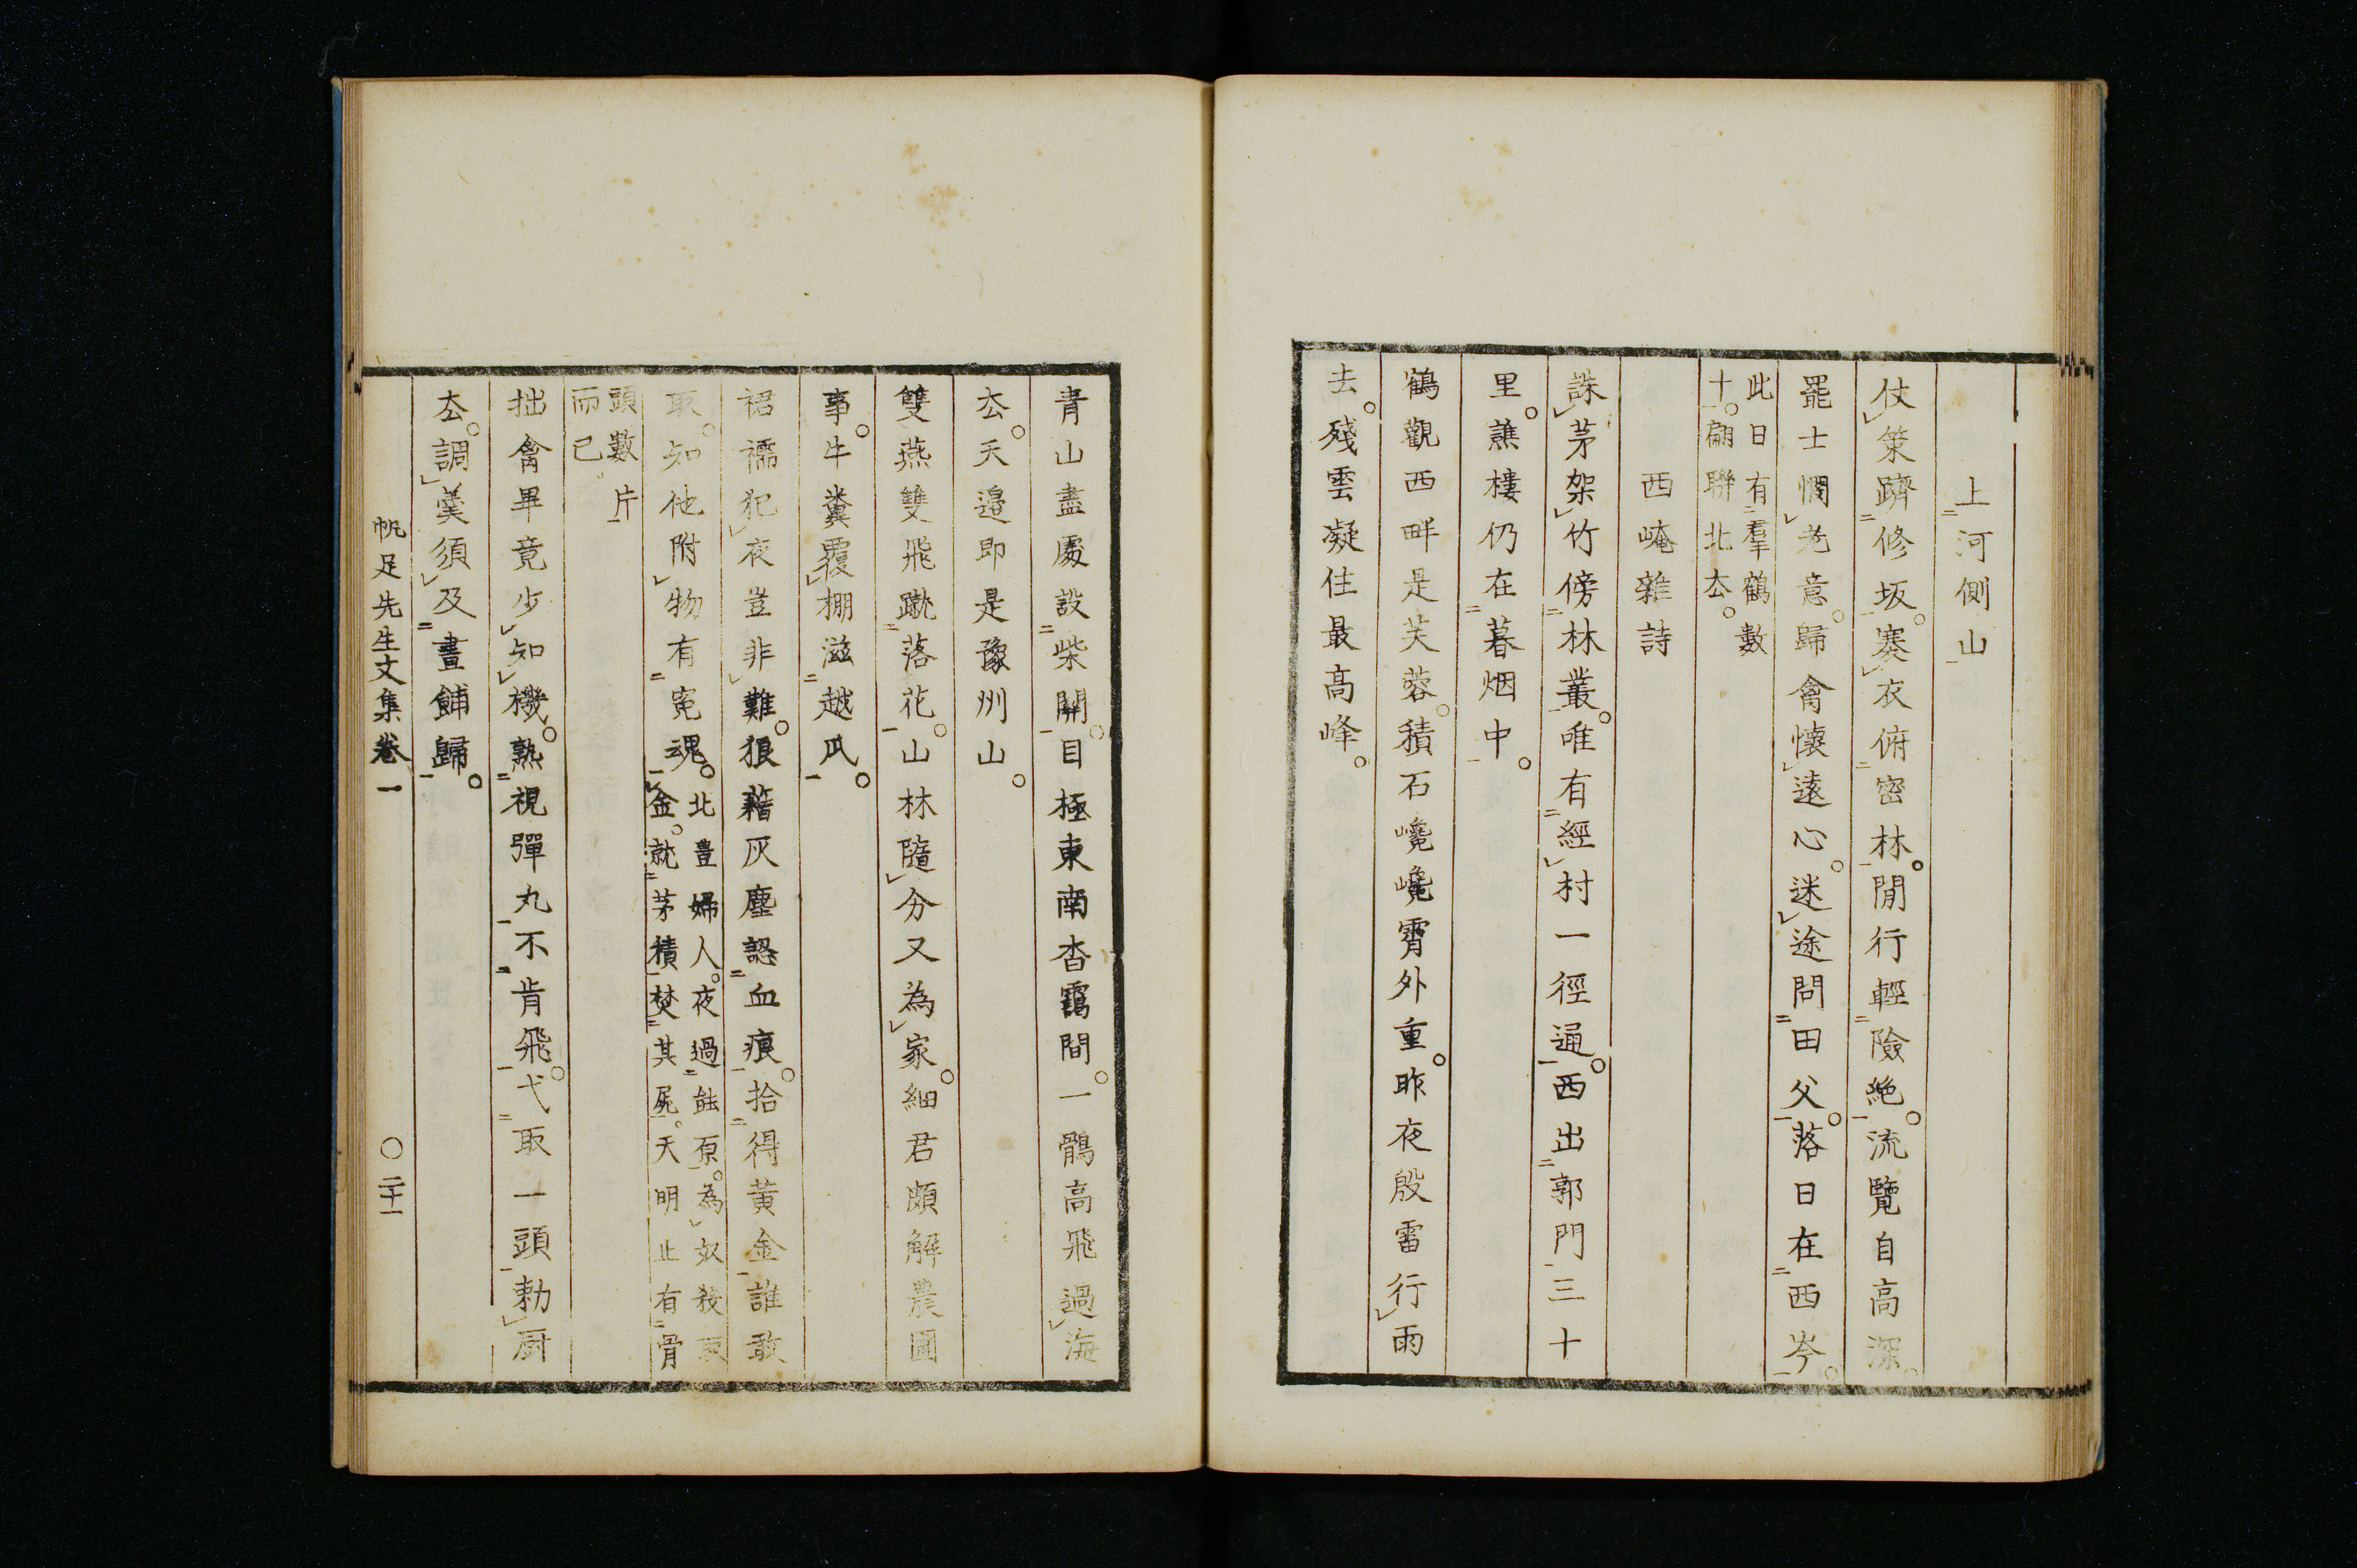 上河側山
仗策躋修坂。褰衣俯密林。閒行輕險絶。流覽自高深。
罷士憫意。歸禽懷遠心。迷途問田父。落日在西岑。
此日有羣鶴數
十。翩聯北厺。
西崦雜詩
誅茅架竹傍林叢。唯有經村一徑通。西出郭門三十
里。譙樓仍在暮烟中。
鶴觀西畔是芙蓉。積石巉巉霄外重。昨夜殷雷行雨
去。殘雲凝住最高峰。
青山盡處設柴關。目極東南杳靄間。一鶻高飛過海
厺。天邉即是豫州山。
雙燕雙飛蹴落花。山林隨分又為家。細君頗解農圃
事。牛糞覆棚滋越瓜。
裙襦犯夜豈非難。狼藉灰塵認血痕。拾得黄金誰敢
取。知他附物有寃魂。
北豊婦人。夜過能原。為奴殺
金。就茅積焚其屍。天明止有骨
頭數片
而已
拙禽畢竟少知機。熟視彈丸不肯飛。弋取一頭勅厨
厺。調羹須及晝餔歸。
帆足先生文集卷一 〇二十一